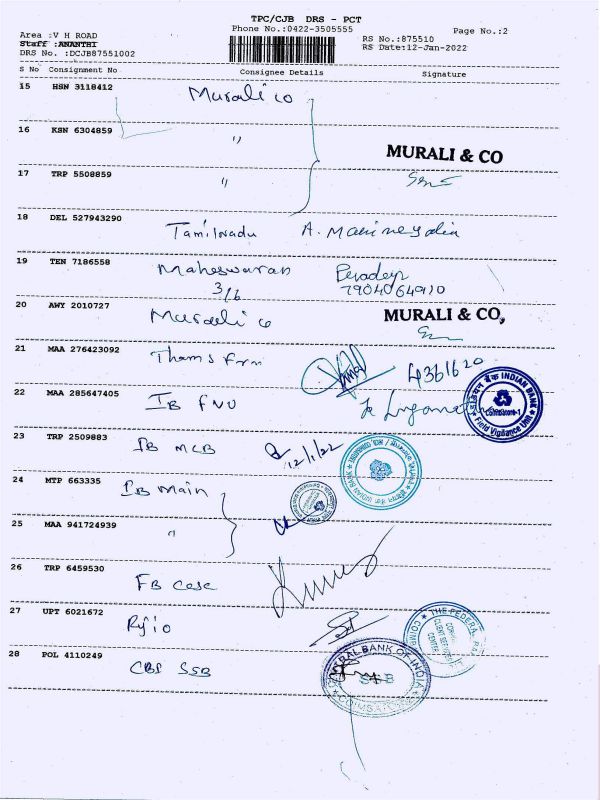 TPC/CJB DRS - PCT
Phone No.:0422-3505555
Page No.:2
Area :V H ROAD
Staff :ANANTHI
DRS No. :DCJB87551002
RS No.:875510
RS Date:12-Jan-2022
S No Consignment No Consignee Details Signature
15 HSN 3118412 Murali co
16 KSN 6304859 "
MURALI & CO
17 TRP 5508859 "
18 DEL 527943290 Tamilnadu
19 TEN 7186558 Maheswaran
3/6
7904064910
20 AWY 2010727 Murali co
MURALI & CO,
21 MAA 276423092
22 MAA 285647405 IB FVU
इंडियन बैंक INDIAN BANK
Coimbatore-1
Field Vigilance Unit
23 TRP 2509883 IB MCB 12/1/22
INDIAN BANK
24 MTP 663335 IB Main
25 MAA 941724939 "
26 TRP 6459530 FB
27 UPT 6021672
THE FEDERAL
28 POL 4110249 CBI SSB
CENTRAL BANK OF INDIA
SSB